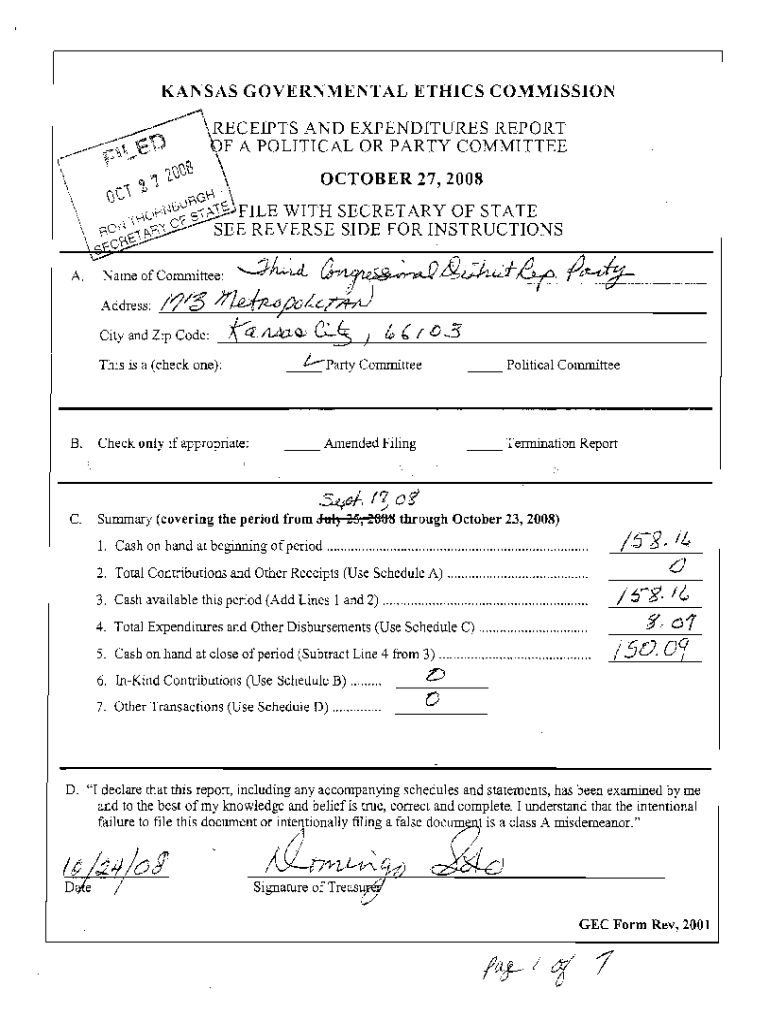 KANSAS GOVERNMENTAL ETHICS COMMISSION
RECEIPTS AND EXPENDITURES REPORT
OF A POLITICAL OR PARTY COMMITTEE
OCTOBER 27, 2008
FILE WITH SECRETARY OF STATE
SEE REVERSE SIDE FOR INSTRUCTIONS
FILED
OCT 27 2008
RON THORNBURGH
SECRETARY OF STATE
A. Name of Committee: Third Congressional District Rep. Party
Address: 1713 Metropolitan
City and Zip Code: Kansas City, 66103
This is a (check one): Party Committee Political Committee
B. Check only if appropriate: Amended Filing Termination Report
Sept. 17, 08
C. Summary (covering the period from July 25, 2008 through October 23, 2008)
1. Cash on hand at beginning of period 158.16
2. Total Contributions and Other Receipts (Use Schedule A) 0
3. Cash available this period (Add Lines 1 and 2) 158.16
4. Total Expenditures and Other Disbursements (Use Schedule C) 8.07
5. Cash on hand at close of period (Subtract Line 4 from 3) 150.09
6. In-Kind Contributions (Use Schedule B) 0
7. Other Transactions (Use Schedule D) 0
D. "I declare that this report, including any accompanying schedules and statements, has been examined by me
and to the best of my knowledge and belief is true, correct and complete. I understand that the intentional
failure to file this document or intentionally filing a false document is a class A misdemeanor."
10/24/08 Domingo Soto
Date Signature of Treasurer
GEC Form Rev, 2001
Page 1 of 7